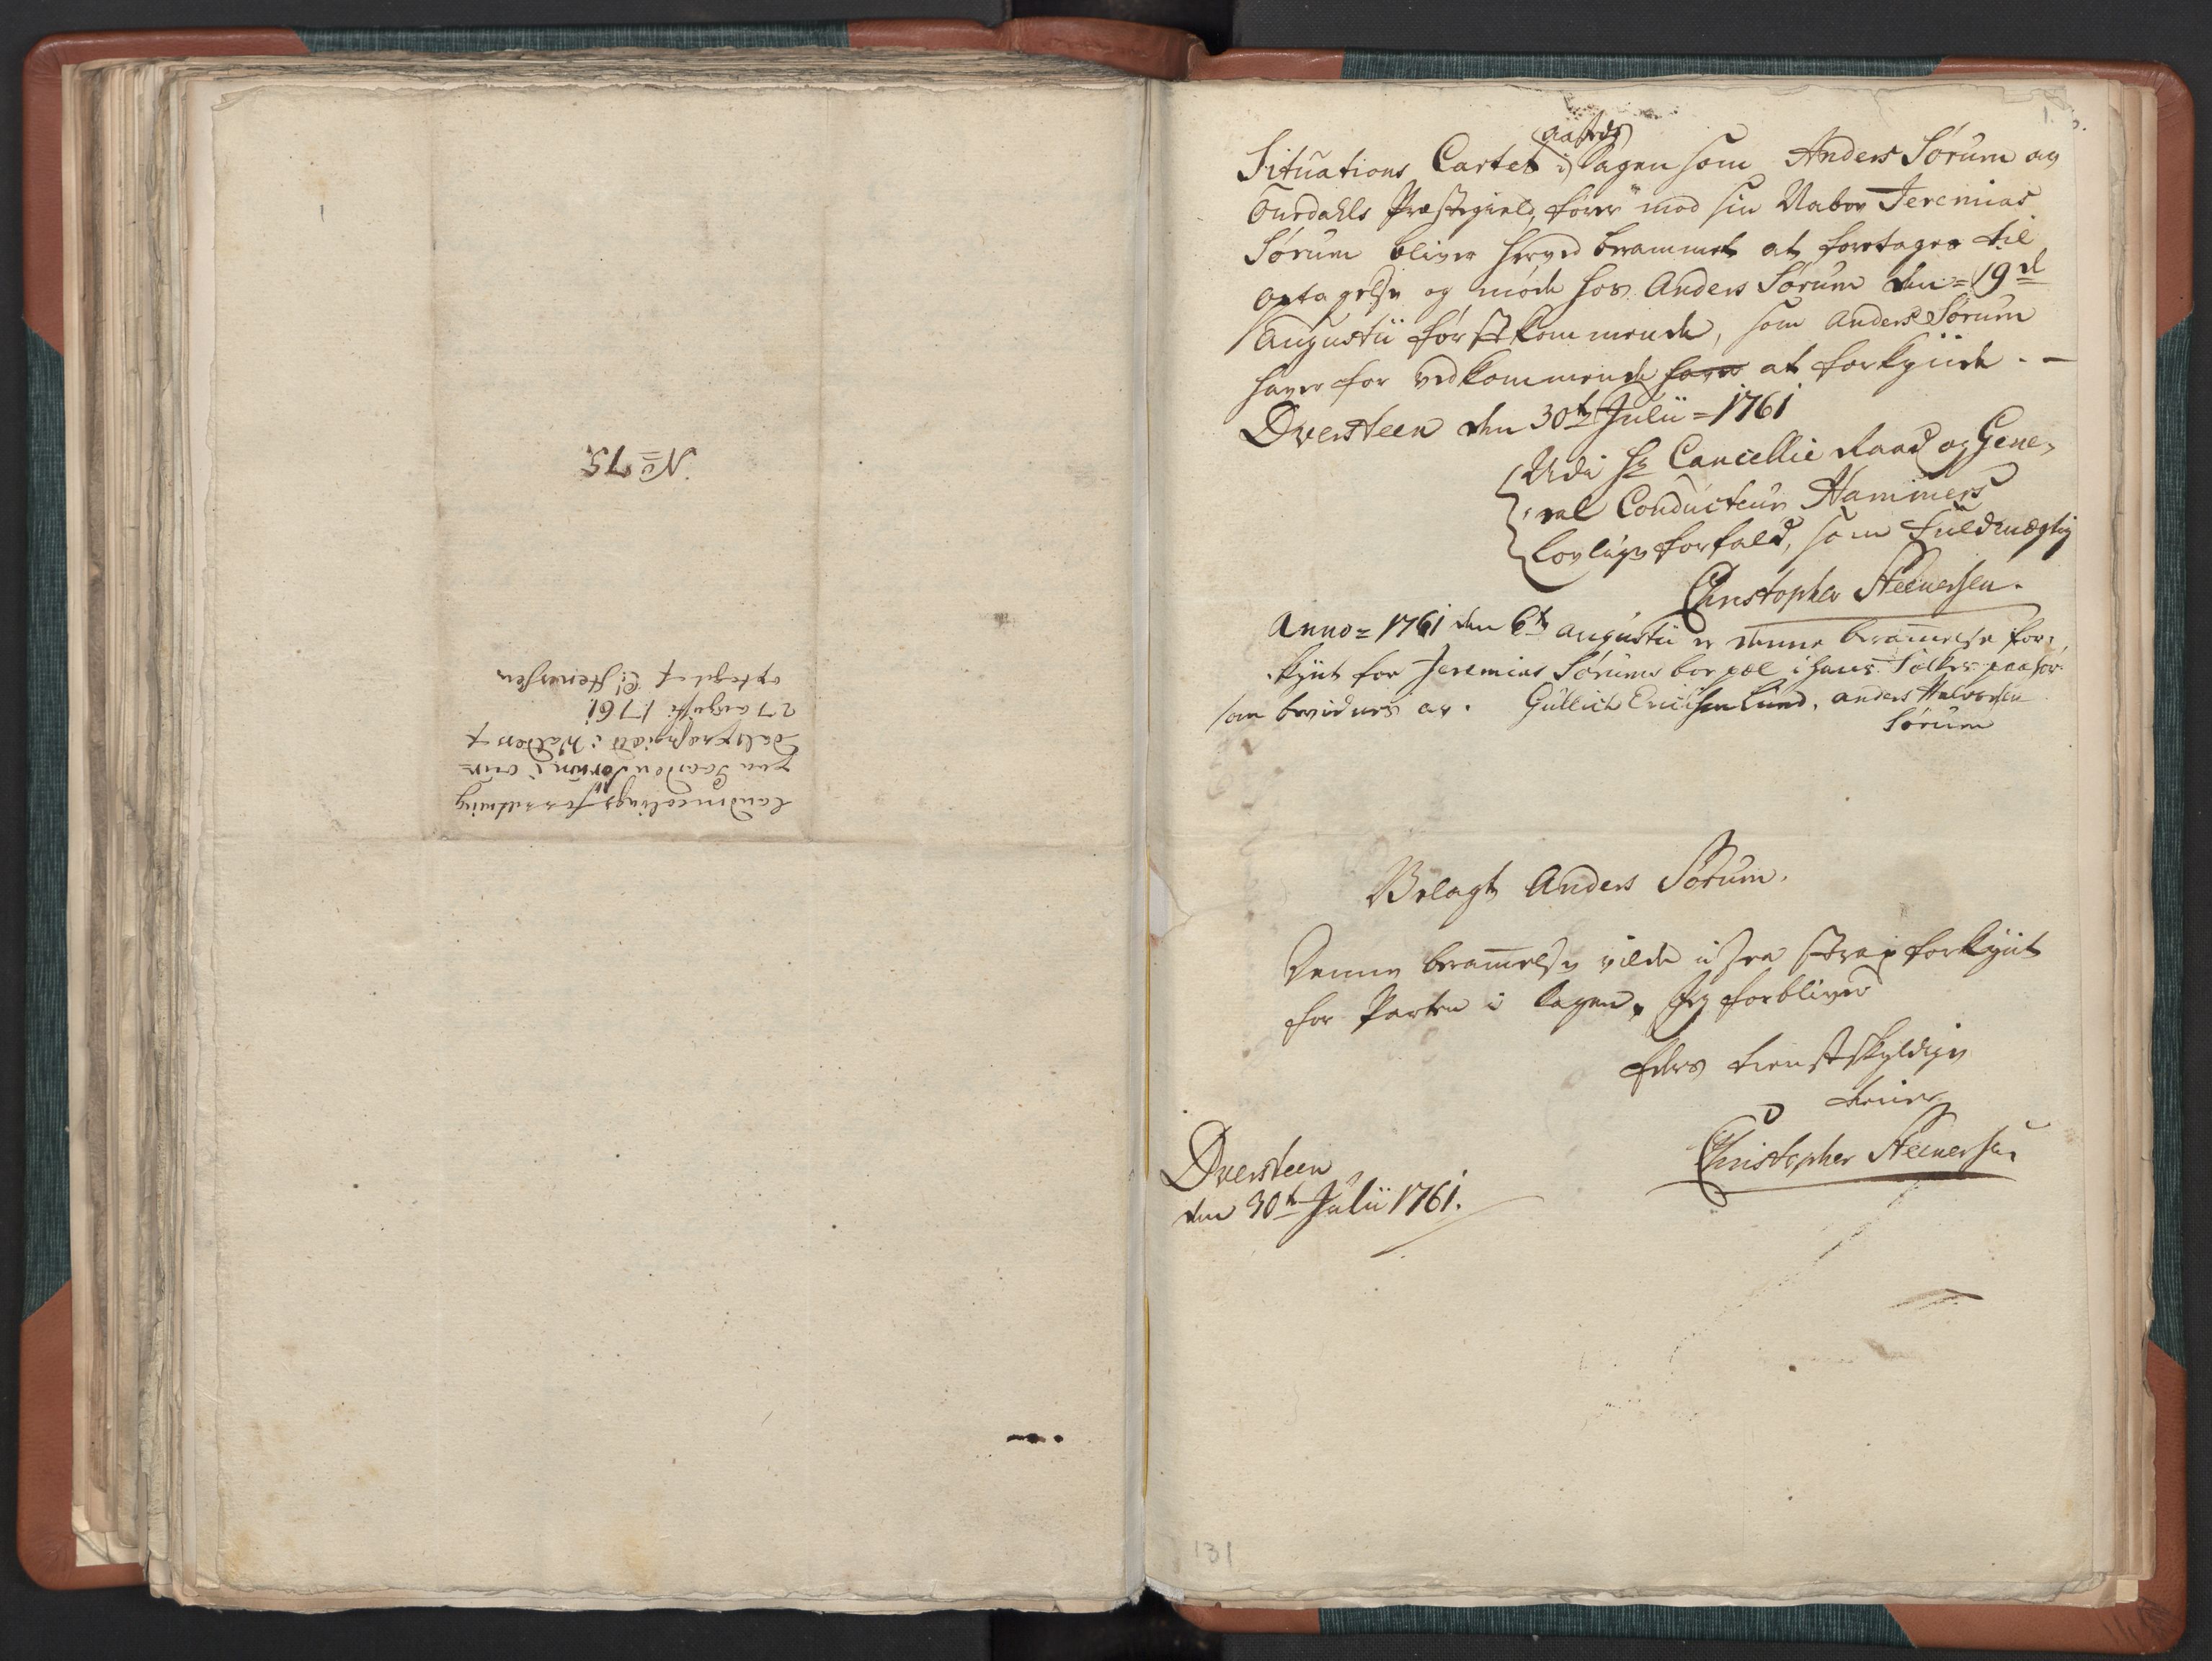 No 75.
Landmaalings forretning
paa Gaarden Sørum i Aur-
dals præstegiæld i Walders
27 augusti 1761
optaget af C: Stenersen
aasteds
Situations Cartet i Sagen som Anders Sørum og
Ourdahls Præstegield, fører mod sin Naboe Jeremias
Sørum bliver herved berammet at foretages til
optagelse og møde hos Anders Sørum den = 19de
Augustii førstkommende, som Anders Sørum
haver for vedkommende at forkynde. -
Dversteen den 30te Julii = 1761
Udi Hr Cancellie Raad og Gene-
ral Conducteur Hammers
lovlige forfald, som Fuldmægtig
Christopher Steenersen.
Anno = 1761 den 6te augustii er denne beram̄else for-
kynt for Jeremias Sørums bopæl i hans Folkes paahør
som bevidnes av. Gullich Erichsen Lund, anders Halvorsen
Sørum
Velagt Anders Sørum.
Denne beram̄else vilde i faa strax forkynt
for Parten i Sagen, Jeg forbliver
Eders tienstskyldige
tiener
Christopher Steenersen
Dversteen
den 30te Julii 1761.
131